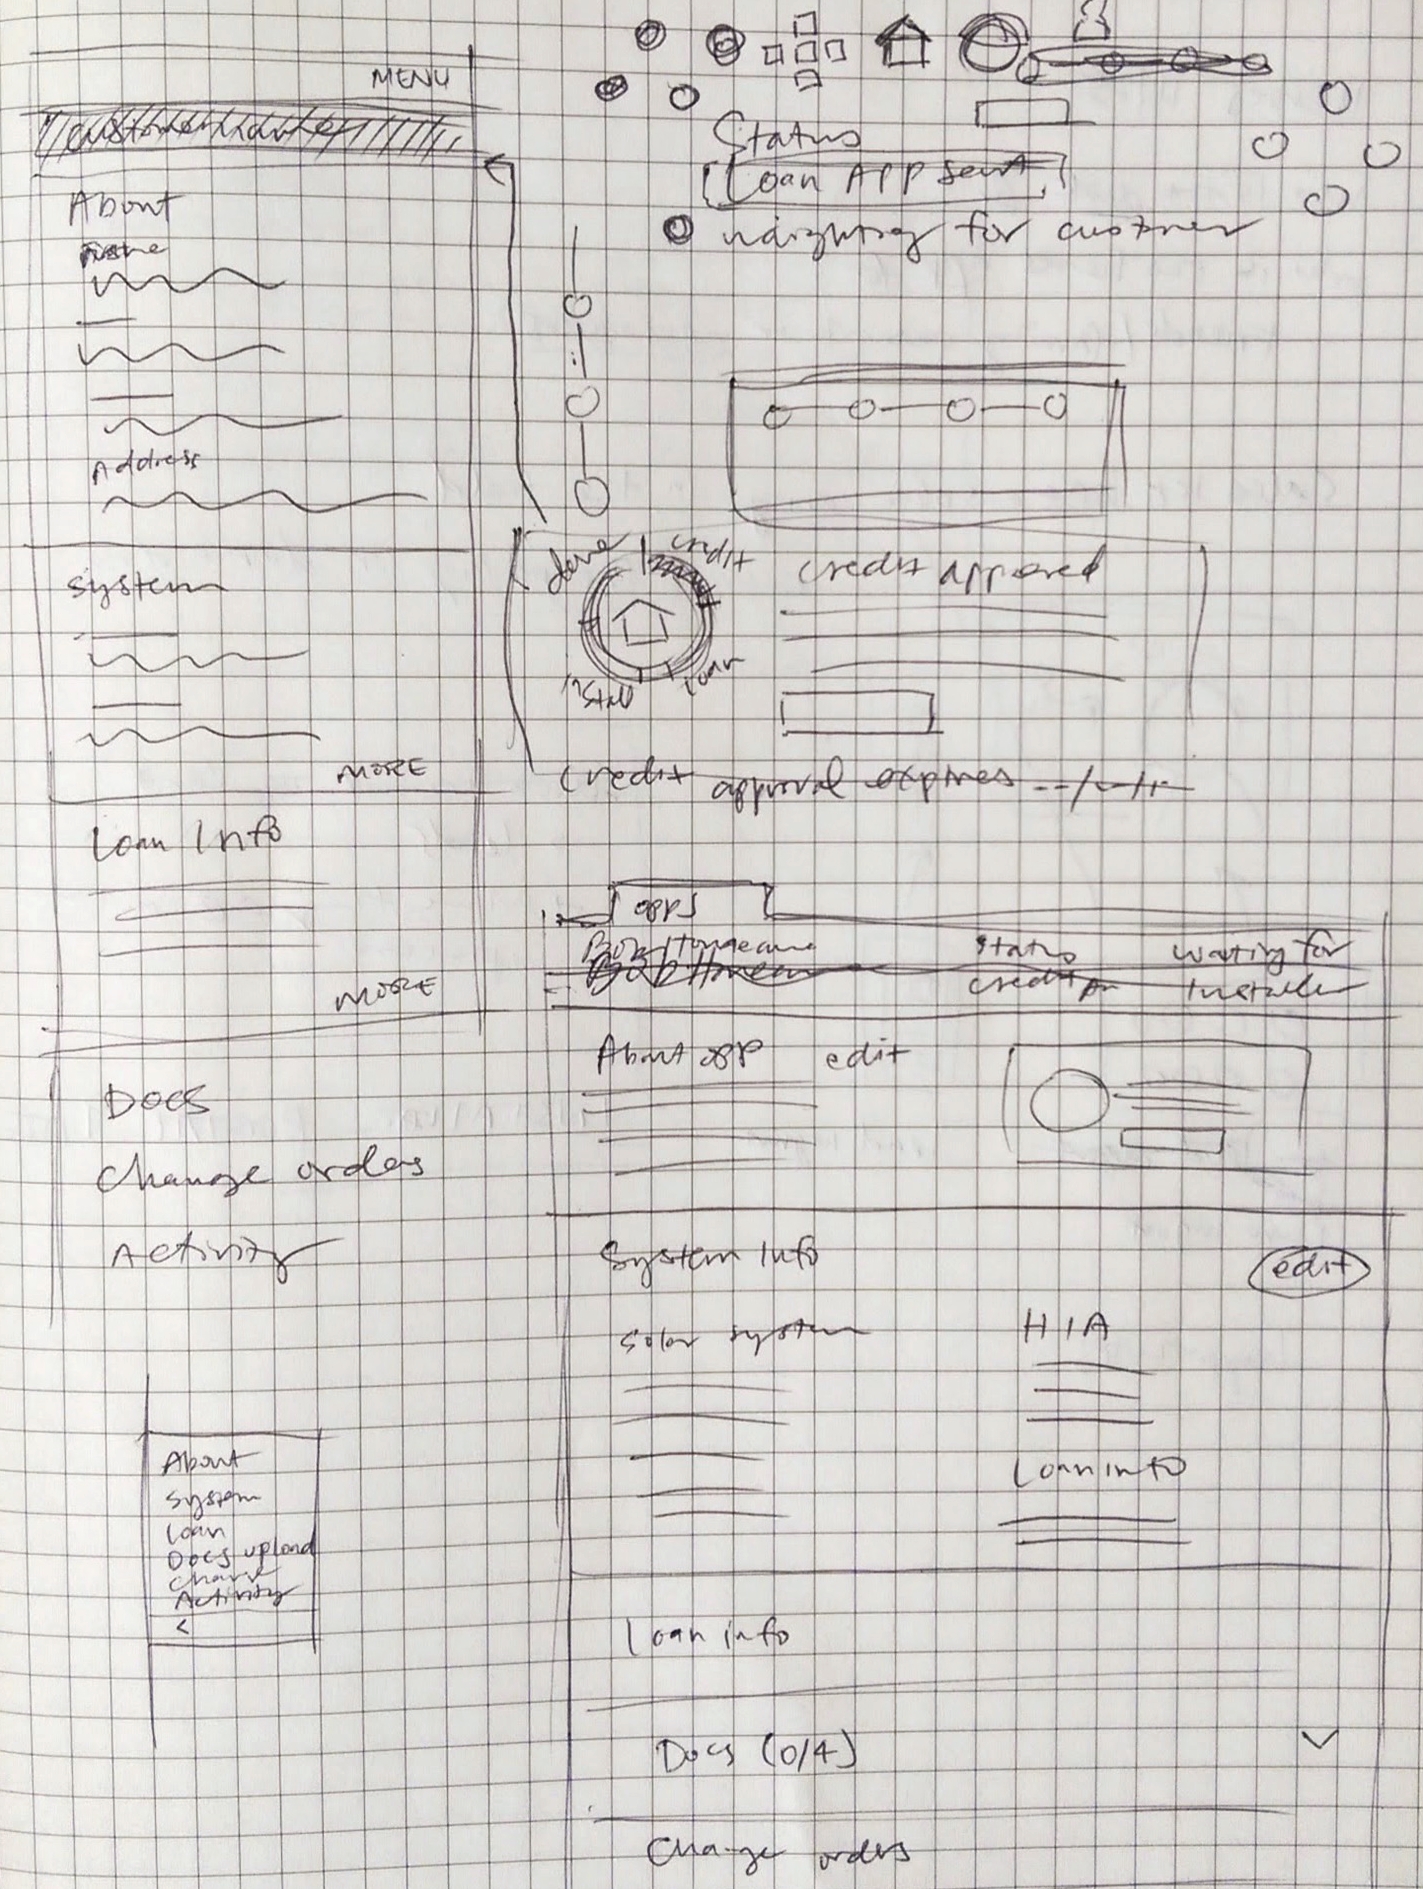 MENU
About
Name
Address
System
MORE
Loan Info
MORE
Docs
Change orders
Activity
About
System
Loan
Docs upload
Change
Activity
<
Status
Loan App sent
for customer
done
credit
loan
install
Credit approved
Credit approval expires --/--/--
apps
Bob Homeowner
Status
Waiting for
Bob Homeowner
Credit
Installer
About app
edit
System Info
edit
Solar system
HIA
Loan info
Loan info
Docs (0/4)
Change orders